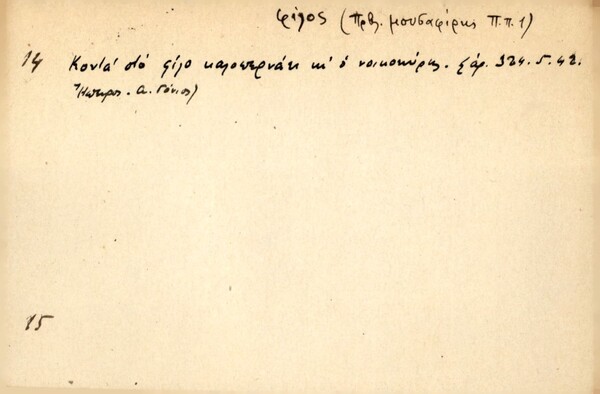 φίλος (Πρβ. μουσαφίρης Π.π. 1)
14 Κοντά στό φίλο καλοπερνάει κι' ὁ νοικοκύρης. ξάρ. 324. 5. 42.
Ἤπειρος. Α. Γόνιος)
15